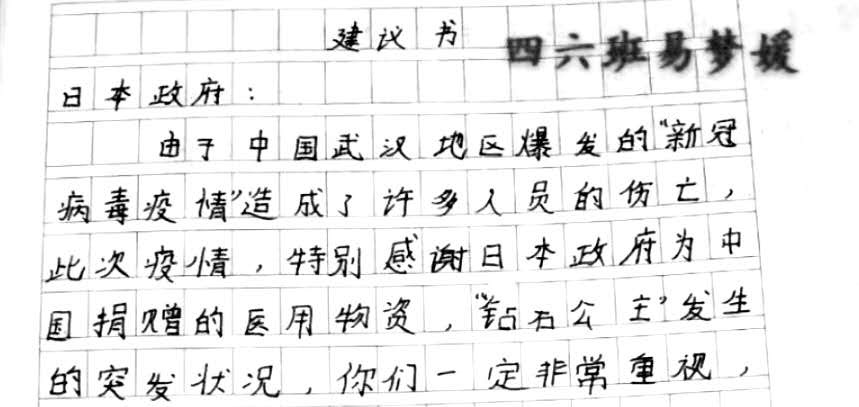 建议书 四六班易梦媛
日本政府：
由于中国武汉地区爆发的“新冠
病毒疫情”造成了许多人员的伤亡，
此次疫情，特别感谢日本政府为中
国捐赠的医用物资，“钻石公主”发生
的突发状况，你们一定非常重视，